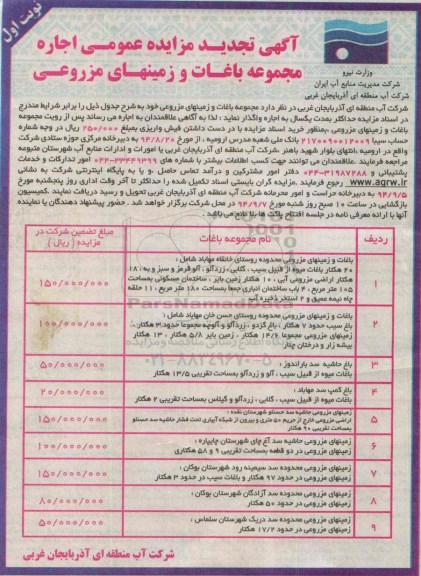 نوبت اول
آگهی تجدید مزایده عمومی اجاره
مجموعه باغات و زمینهای مزروعی
وزارت نیرو
شرکت مدیریت منابع آب ایران
شرکت آب منطقه ای آذربایجان غربی
شرکت آب منطقه ای آذربایجان غربی در نظر دارد مجموعه باغات و زمینهای مزروعی خود به شرح جدول ذیل را برابر شرایط مندرج
در اسناد مزایده حداکثر بمدت یکسال به اجاره واگذار نماید ؛ لذا به آگاهی علاقمندان به اجاره می رساند پس از رویت مجموعه
باغات و زمینهای مزروعی ،بمنظور خرید اسناد مزایده با در دست داشتن فیش واریزی بمبلغ ۲۵۰/۰۰۰ ریال در وجه شماره
حساب سیبا ۲۱۷۰۰۹۰۰۱۲۰۰۹ بانک ملی شعبه مدرس ارومیه ، از مورخ ۹۴/۸/۲۰ به دبیرخانه مرکزی حوزه ستادی شرکت
واقع در ارومیه ،انتهای بلوار شهید باهنر ،شرکت آب منطقه ای آذربایجان غربی یا امورات و ادارات منابع آب شهرستان متبوعه
مراجعه فرمایند .علاقمندان می توانند جهت کسب اطلاعات بیشتر با شماره های ۳۳۴۴۹۳۹۹-۰۴۴ امور تدارکات و خدمات
پشتیبانی و ۳۱۹۸۷۲۸۸-۰۴۴ دفتر امور مشترکین و درآمد تماس حاصل ،و یا به پایگاه اینترنتی شرکت به نشانی
www.agrw.ir رجوع فرمایند .مزایده گران بایستی اسناد تکمیل شده را حداکثر تا آخر وقت اداری روز پنجشنبه مورخ
۹۴/۹/۵ به دبیرخانه حراست و امور محرمانه شرکت آب منطقه ای آذربایجان غربی تحویل و رسید دریافت نمایند .کمیسیون
بازگشایی در ساعت ۱۰ صبح روز شنبه مورخ ۹۴/۹/۷ در محل شرکت برگزار خواهد شد . حضور پیشنهاد دهندگان یا نماینده
آنها با ارائه معرفی نامه در جلسه افتتاح پاکت ها بلا مانع می باشد .
ردیف نام مجموعه باغات مبلغ تضمین شرکت در مزایده ( ریال )
۱ باغات و زمینهای مزروعی محدوده روستای خانقاه مهاباد شامل :
۲۰ هکتار باغات میوه از قبیل سیب ، گلابی ، زردآلو ، آلو قرمز و سبز و به ؛ ۱۸
هکتار اراضی مزروعی آبی ، ۱۰ هکتار زمین بایر ، ساختمان مسکونی بمساحت
۱۰۵ متر مربع ، ۴ باب ساختمان انباری جمعا بمساحت ۱۸۰ متر مربع ، ۱۱ حلقه
چاه نیمه عمیق و ۲ استخر ذخیره آب ۱۵۰/۰۰۰/۰۰۰
۲ باغات و زمینهای مزروعی محدوده روستای حسن خان مهاباد شامل :
باغ سیب حدود ۷ هکتار ، باغ گردو ، زردآلو و آلوچه مجموعا حدود ۳ هکتار ،
زمینهای مزروعی مجموعا ۱۴/۶ هکتار ، زمین بایر ۵/۸ هکتار ، ۱۳ هکتار
بیشه زار و درختان چنار ۱۰۰/۰۰۰/۰۰۰
۳ باغ حاشیه سد باراندوز :
باغات میوه از قبیل سیب ، آلو و زردآلو بمساحت تقریبی ۱۳/۵ هکتار ۵۰/۰۰۰/۰۰۰
۴ باغ کمپ سد مهاباد :
باغات میوه از قبیل سیب ، گلابی ، زردآلو و گیلاس بمساحت تقریبی ۲ هکتار ۲۰/۰۰۰/۰۰۰
۵ زمینهای مزروعی حاشیه سد حسنلو شهرستان نقده :
اراضی مزروعی خارج از حریم ۵۰ متری و بیرون از شبکه آبیاری تحت فشار حاشیه سد حسنلو
بمساحت تقریبی ۹۰ هکتار ۱۵۰/۰۰۰/۰۰۰
۶ زمینهای مزروعی حاشیه سد آغ چای شهرستان چایپاره :
زمینهای مزروعی در دو قطعه بمساحت تقریبی ۹ و ۵۸ هکتاری ۱۰۰/۰۰۰/۰۰۰
۷ زمینهای مزروعی محدوده سد سیمینه رود شهرستان بوکان :
زمینهای مزروعی در حدود ۹۷ هکتار و باغات سیب در حدود ۳ هکتار ۱۵۰/۰۰۰/۰۰۰
۸ زمینهای مزروعی محدوده سد آزادگان شهرستان بوکان :
زمینهای مزروعی در حدود ۵۰ هکتار ۸۰/۰۰۰/۰۰۰
۹ زمینهای مزروعی محدوده سد دریک شهرستان سلماس :
زمینهای مزروعی در حدود ۱۷/۲ هکتار ۵۰/۰۰۰/۰۰۰
ParsNamadData
۰۲۱-۸۸۳۴۹۶۷۰-۵
شرکت آب منطقه ای آذربایجان غربی